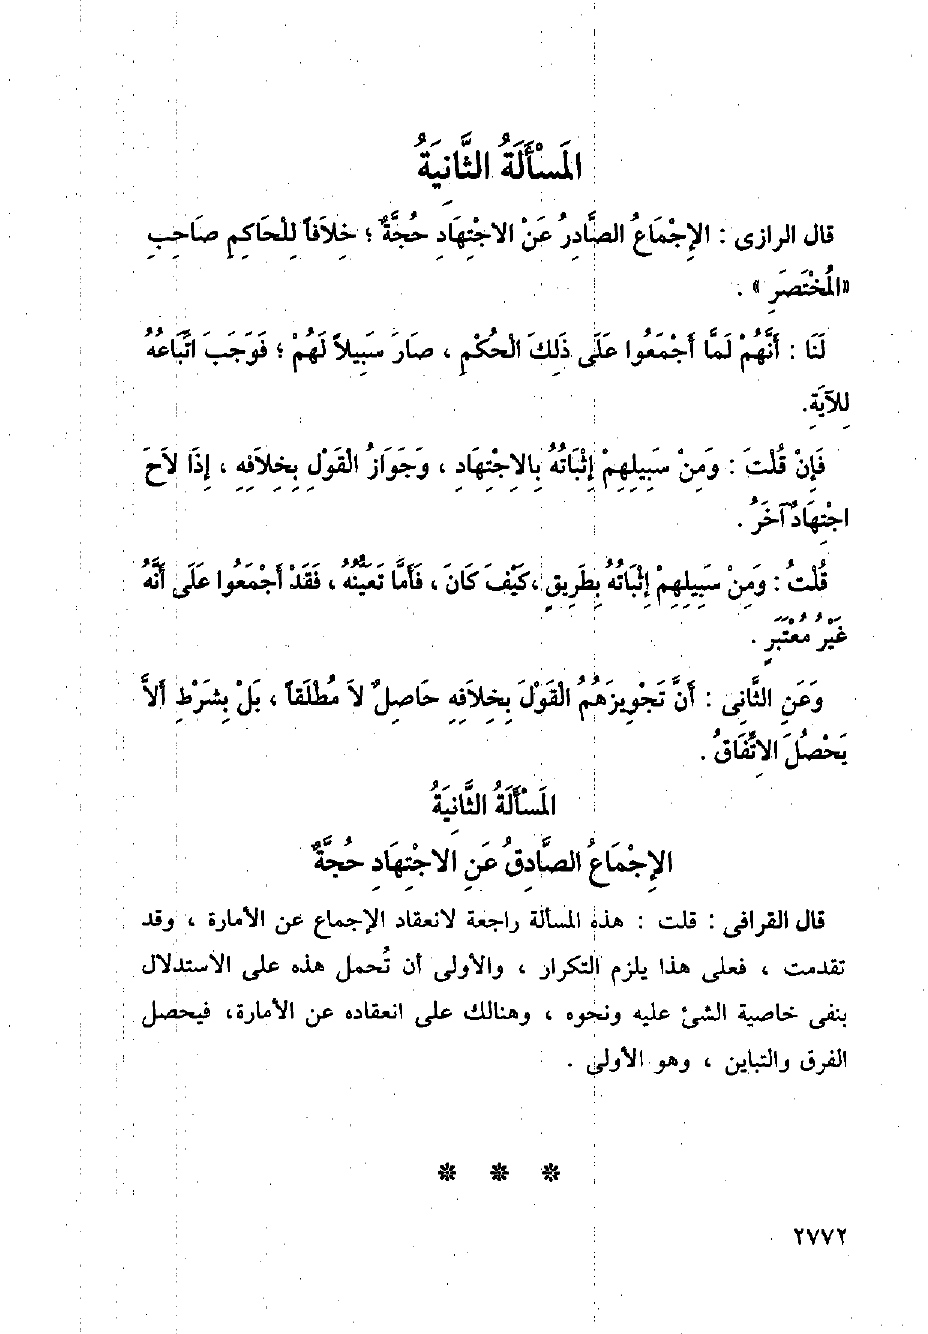 المَسْأَلَةُ الثَّانِيَةُ
قال الرازى : الإِجْمَاعُ الصَّادِرُ عَنْ الاجْتِهَادِ حُجَّةٌ ؛ خِلاَفاً لِلْحَاكِمِ صَاحِبِ
«المُخْتَصَرِ » .
لَنَا : أَنَّهُمْ لَمَّا أَجْمَعُوا عَلَى ذَلِكَ الْحُكْمِ ، صَارَ سَبِيلاً لَهُمْ ؛ فَوَجَبَ اتِّبَاعُهُ
لِلآيَةِ.
فَإِنْ قُلْتَ : وَمِنْ سَبِيلِهِمْ إِثْبَاتُهُ بِالاِجْتِهَادِ ، وَجَوَازُ القَوْلِ بِخِلاَفِهِ ، إِذَا لاَحَ
اجْتِهَادٌ آخَرُ .
قُلْتُ : وَمِنْ سَبِيلِهِمْ إِثْبَاتُهُ بِطَرِيقٍ ،كَيْفَ كَانَ ، فَأَمَّا تَعَيُّنُهُ ، فَقَدْ أَجْمَعُوا عَلَى أَنَّهُ
غَيْرُ مُعْتَبَرٍ .
وَعَنِ الثَّانِى : أَنَّ تَجْوِيزَهُمُ القَوْلَ بِخِلاَفِهِ حَاصِلٌ لاَ مُطْلَقاً ، بَلْ بِشَرْطِ أَلاَّ
يَحْصُلَ الاِتِّفَاقُ .
المَسْأَلَةُ الثَّانِيَةُ
الإِجْمَاعُ الصَّادِقُ عَنِ الاجْتِهَادِ حُجَّةٌ
قال القرافى : قلت : هذه المسألة راجعة لانعقاد الإجماع عن الأمارة ، وقد
تقدمت ، فعلى هذا يلزم التكرار ، والأولى أن تُحمل هذه على الاستدلال
بنفى خاصية الشئ عليه ونحوه ، وهنالك على انعقاده عن الأمارة، فيحصل
الفرق والتباين ، وهو الأولى .
* * *
٢٧٧٢